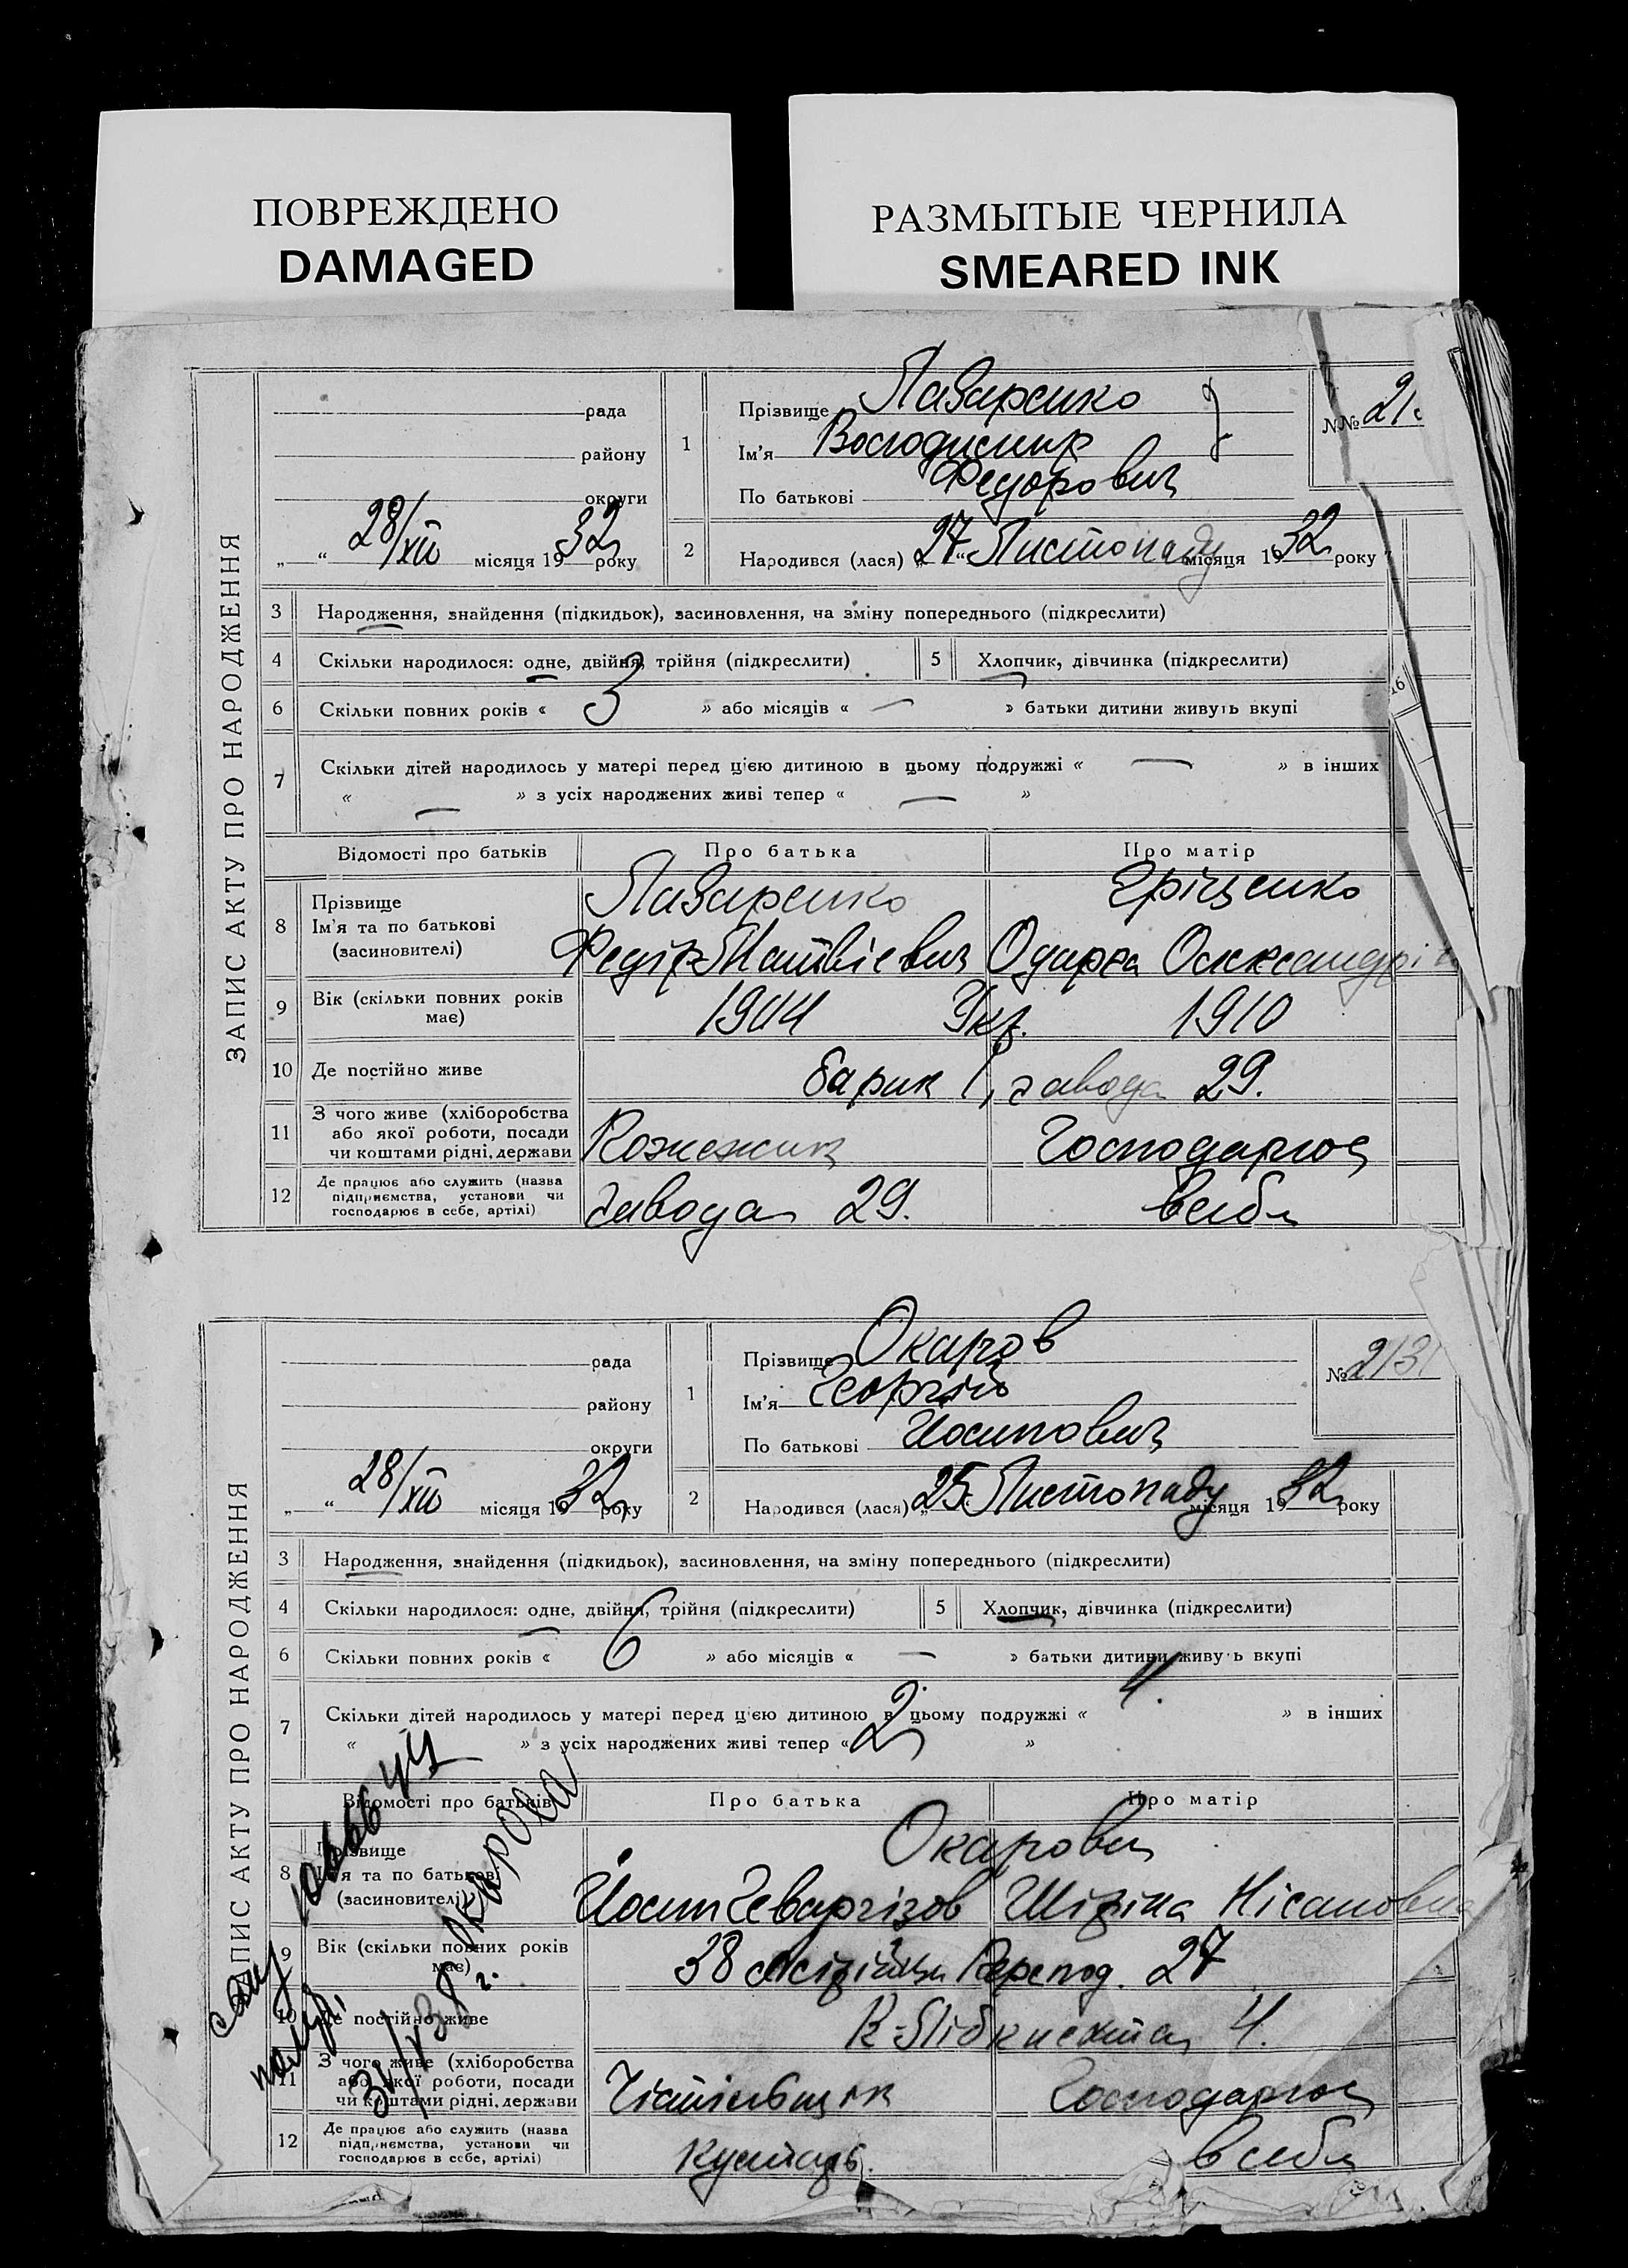 ПОВРЕЖДЕНО
DAMAGED
РАЗМЫТЫЕ ЧЕРНИЛА
SMEARED INK
ЗАПИС АКТУ ПРО НАРОДЖЕННЯ
рада
району
округи
„ “ 28/XII місяця 1932 року
1
Прізвище Лазаренко
Ім'я Володимир
По батькові Федорович
№№ 21
2
Народився (лася) „27“ Листопаду місяця 1932 року
3 Народження, знайдення (підкидьок), засиновлення, на зміну попереднього (підкреслити)
4 Скільки народилося: одне, двійня, трійня (підкреслити)
5 Хлопчик, дівчинка (підкреслити)
6 Скільки повних років « 3 » або місяців « — » батьки дитини живуть вкупі
16
7 Скільки дітей народилось у матері перед цією дитиною в цьому подружжі « — » в інших
« — » з усіх народжених живі тепер « — »
Відомості про батьків Про батька Про матір
8 Прізвище
Ім'я та по батькові
(засновителі)
Лазаренко Гріценко
Федір Матвіевич Одарка Олександрів
9 Вік (скільки повних років
має)
1904 Укр. 1910
10 Де постійно живе барак 1, завода 29.
11 З чого живе (хліборобства
або якої роботи, посади
чи коштами рідні, держави
Кожежик Господарює
12 Де працює або служить (назва
підприємства, установи чи
господарює в себе, артілі)
завода 29. в себе
ЗАПИС АКТУ ПРО НАРОДЖЕННЯ
рада
району
округи
„ “ 28/XII місяця 1932 року
1
Прізвище Окаров
Ім'я Георгій
По батькові Йосипович
№ 2131
2
Народився (лася) „25. Листопаду місяця 1932 року
3 Народження, знайдення (підкидьок), засиновлення, на зміну попереднього (підкреслити)
4 Скільки народилося: одне, двійня, трійня (підкреслити)
5 Хлопчик, дівчинка (підкреслити)
6 Скільки повних років « 6 » або місяців « — » батьки дитини живуть вкупі
7 Скільки дітей народилось у матері перед цією дитиною в цьому подружжі « 4. » в інших
« » з усіх народжених живі тепер « 2 »
Відомості про батьків Про батька Про матір
8 Прізвище
Ім'я та по батькові
(засновителі)
Окарови
Йосип Геваргізов Шіріна Нісановна
9 Вік (скільки повних років
має)
38 27
10 Де постійно живе К-Лібкнехта 4.
11 З чого живе (хліборобства
або якої роботи, посади
чи коштами рідні, держави
Чістільщик Господарює
12 Де працює або служить (назва
підприємства, установи чи
господарює в себе, артілі)
Кустарь. в себе